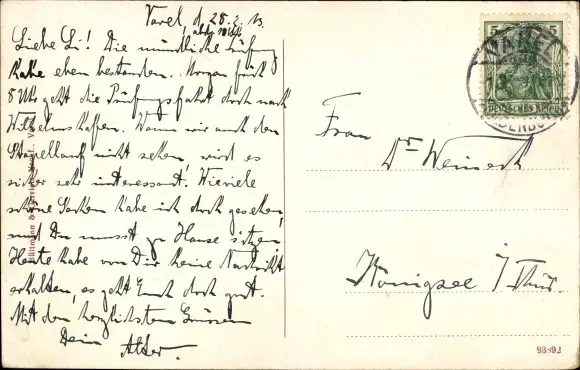 Varel, d. 28.2.13.
abds. 10 Uhr
Liebe Li! Die mündliche Prüfung
habe eben bestanden. Morgen früh
8 Uhr geht die Prüfungsfahrt doch nach
Wilhelmshafen. Wenn wir auch den
Stapellauf nicht sehen, wird es
sicher sehr interessant. Wieviele
schöne Sachen habe ich doch gesehen,
und Du musst zu Hause sitzen.
Heute habe von Dir keine Nachricht
erhalten, es geht Euch doch gut.
Mit den herzlichsten Grüssen
Dein Alter.
Frau
Dr Weineck
Königsee i/Thür.
5 5
DEUTSCHES REICH
VAREL
OLDENBURG
93892